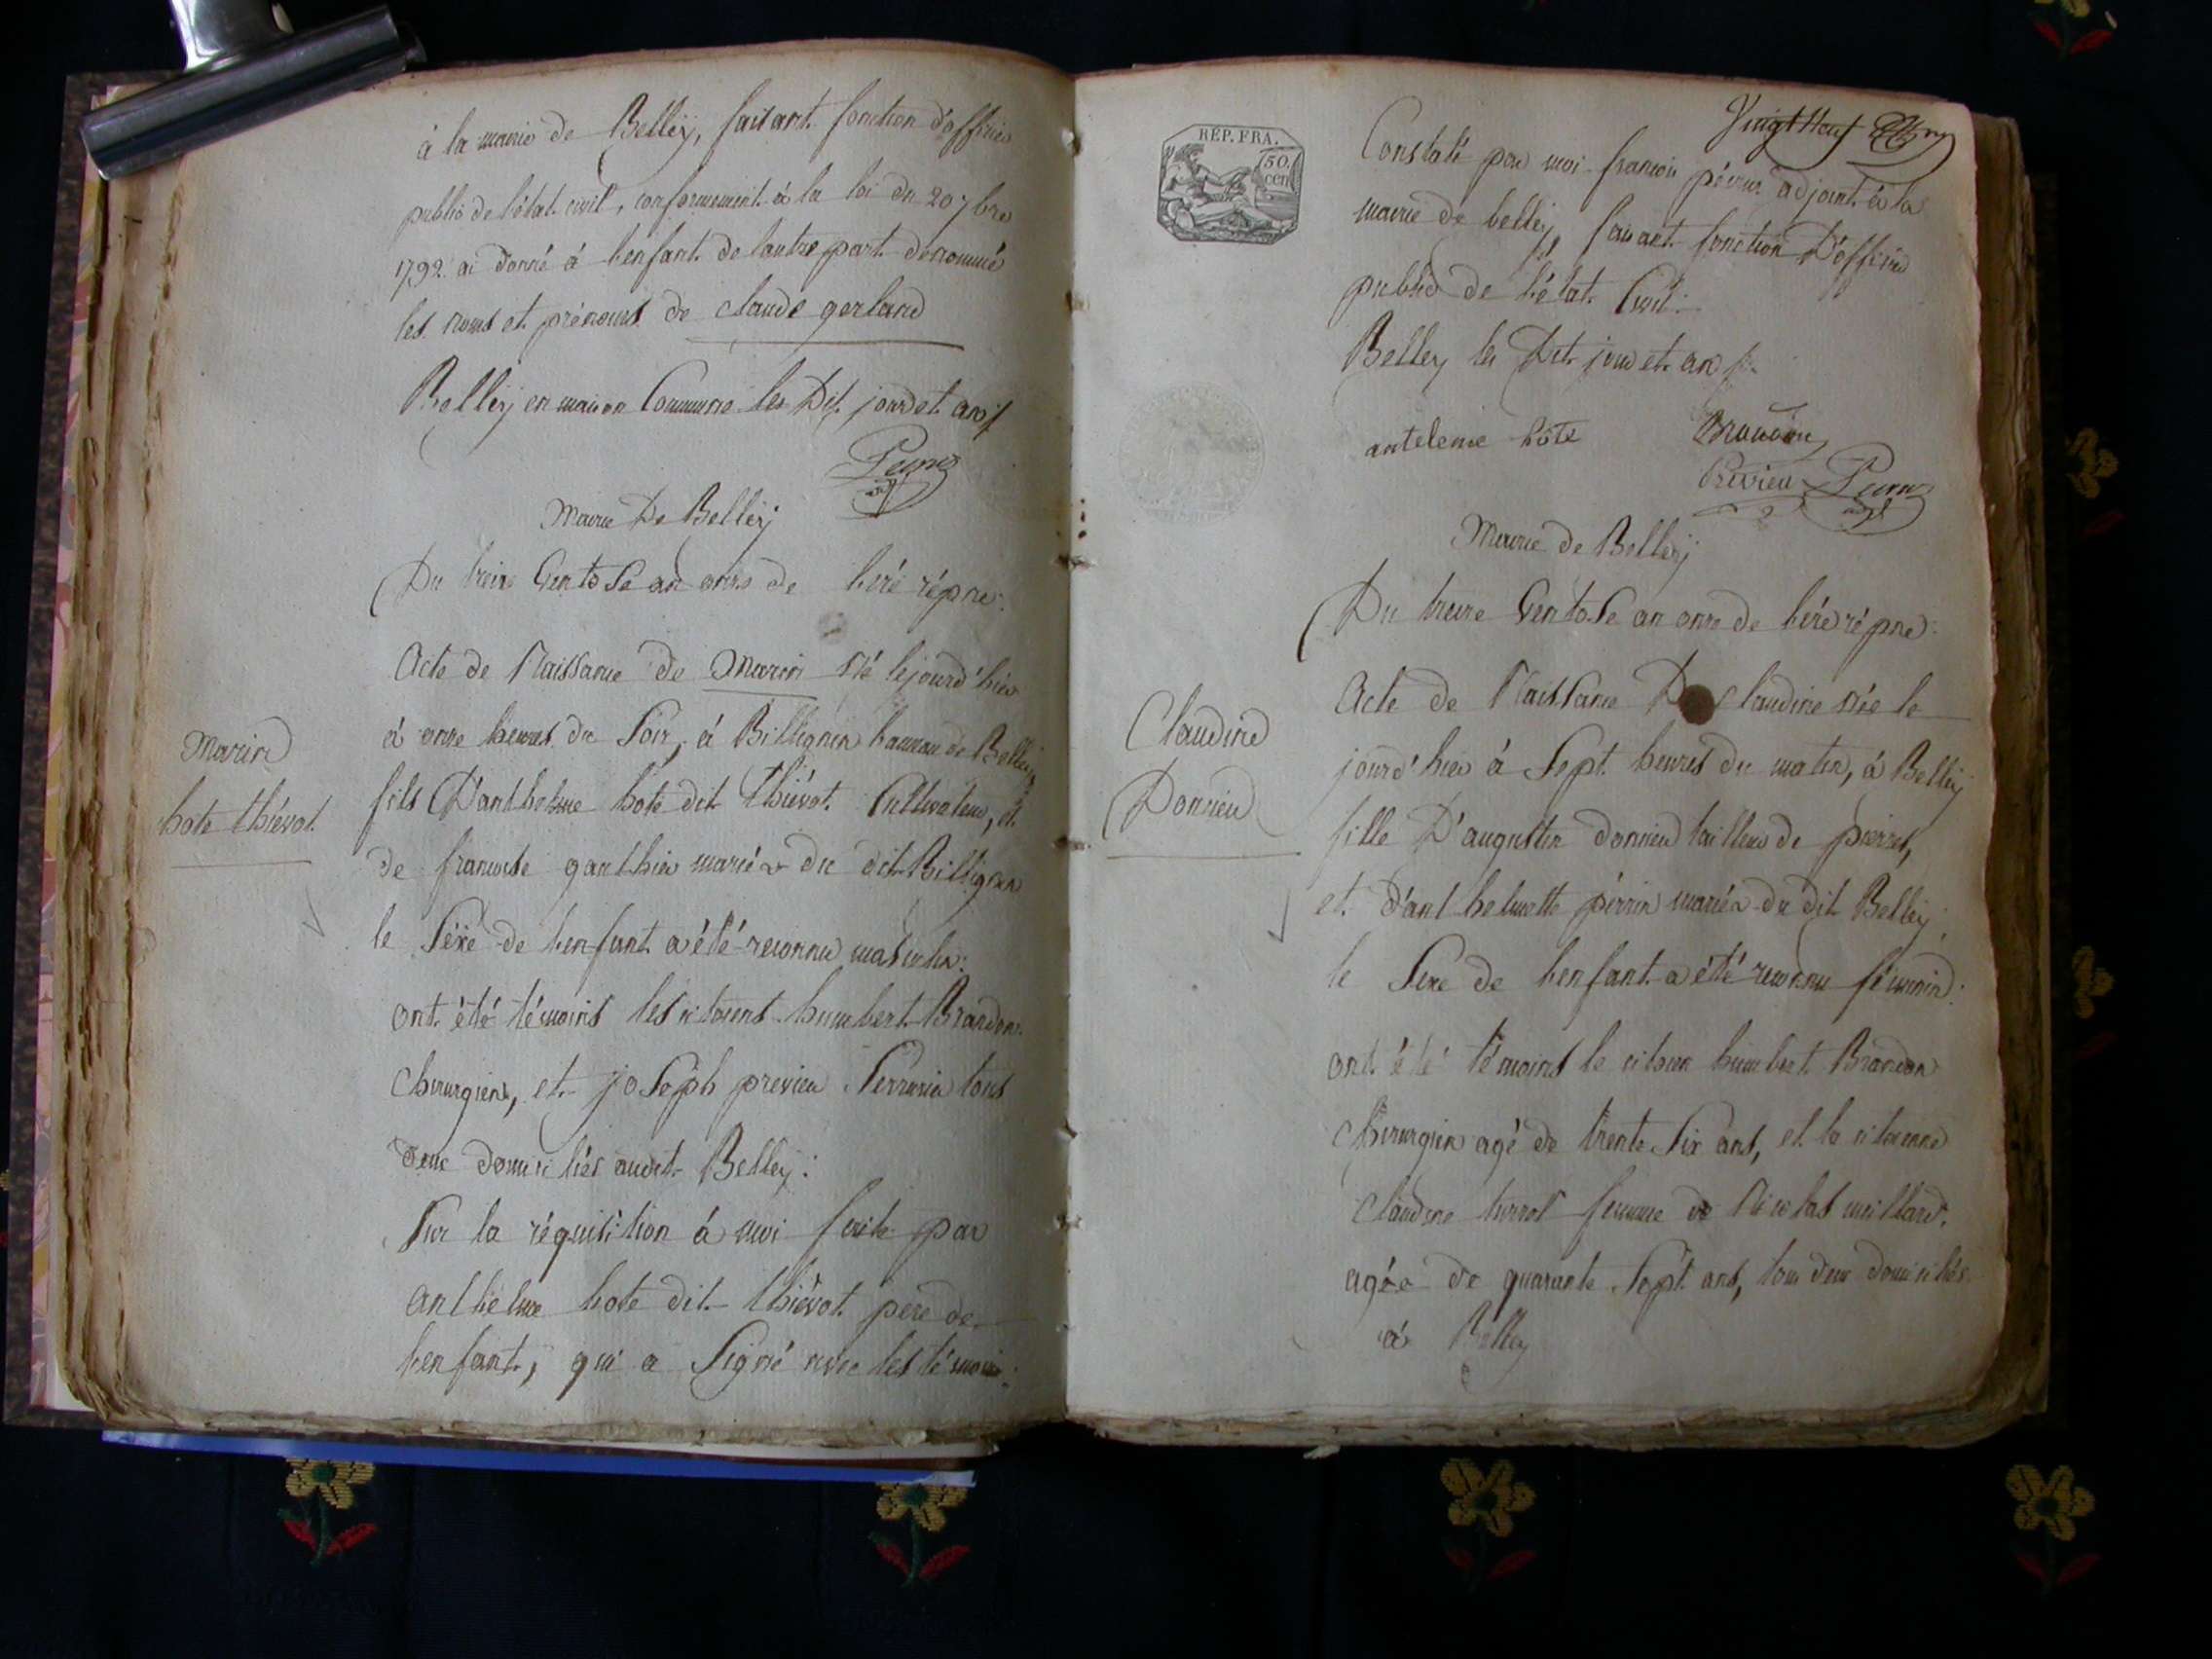 à la mairie de Belley, faisant fonction d'officier
public de l'état civil, conformement à la loi du 20 7bre
1792. ai donné à l'enfant de l'autre part denommé
les noms et prénoms de claude gerland
Belley en maison Commune les Dit jour et an
Mairie De Belley
Du treize Ventose an onze de l'ère répne.
Acte de Naissance de Marin Né le jourd'hier
à onze heures du Soir, à Billignin hameau de Belley
fils D'anthelme hote dit thiévot Cultivateur, et
de francoise gauthier mariés du dit Billignin
le Séxe de l'enfant a été reconnu masculin:
ont été témoins les citoiens humbert Brandon
Chirurgien, et joseph previeu Serrurier tous
deux domiciliés audit Belley:
Sur la réquisition à moi faite par
anthelme hote dit thiévot pere de
l'enfant, qui a Signé avec les témoins:
Marin
hote thiévot
Vingt Neuf
RÉP. FRA.
50.
cen
Constaté par moi francois adjoint à la
mairie de belley, faisant fonction D'officier
public de l'état Civil:
Belley les Dit jour et an
antelme hote Brandon
Previeu
Mairie de Belley
Du treize Ventose an onze de l'ère répne.
Acte de Naissance De Claudine Née le
jourd'hier à Sept heures du matin, à Belley
fille D'augustin donnieu tailleur de pierres,
et d'anthelmette pérrin mariés du dit Belley;
le Sexe de l'enfant a été reconnu féminin:
ont été témoins le citoien humbert Brandon
Chirurgien agé de trente Six ans, et la citoienne
Claudine femme de Nicolas
agée de quarante Sept ans, tous deux domiciliés
à Belley
Claudine
Donnieu